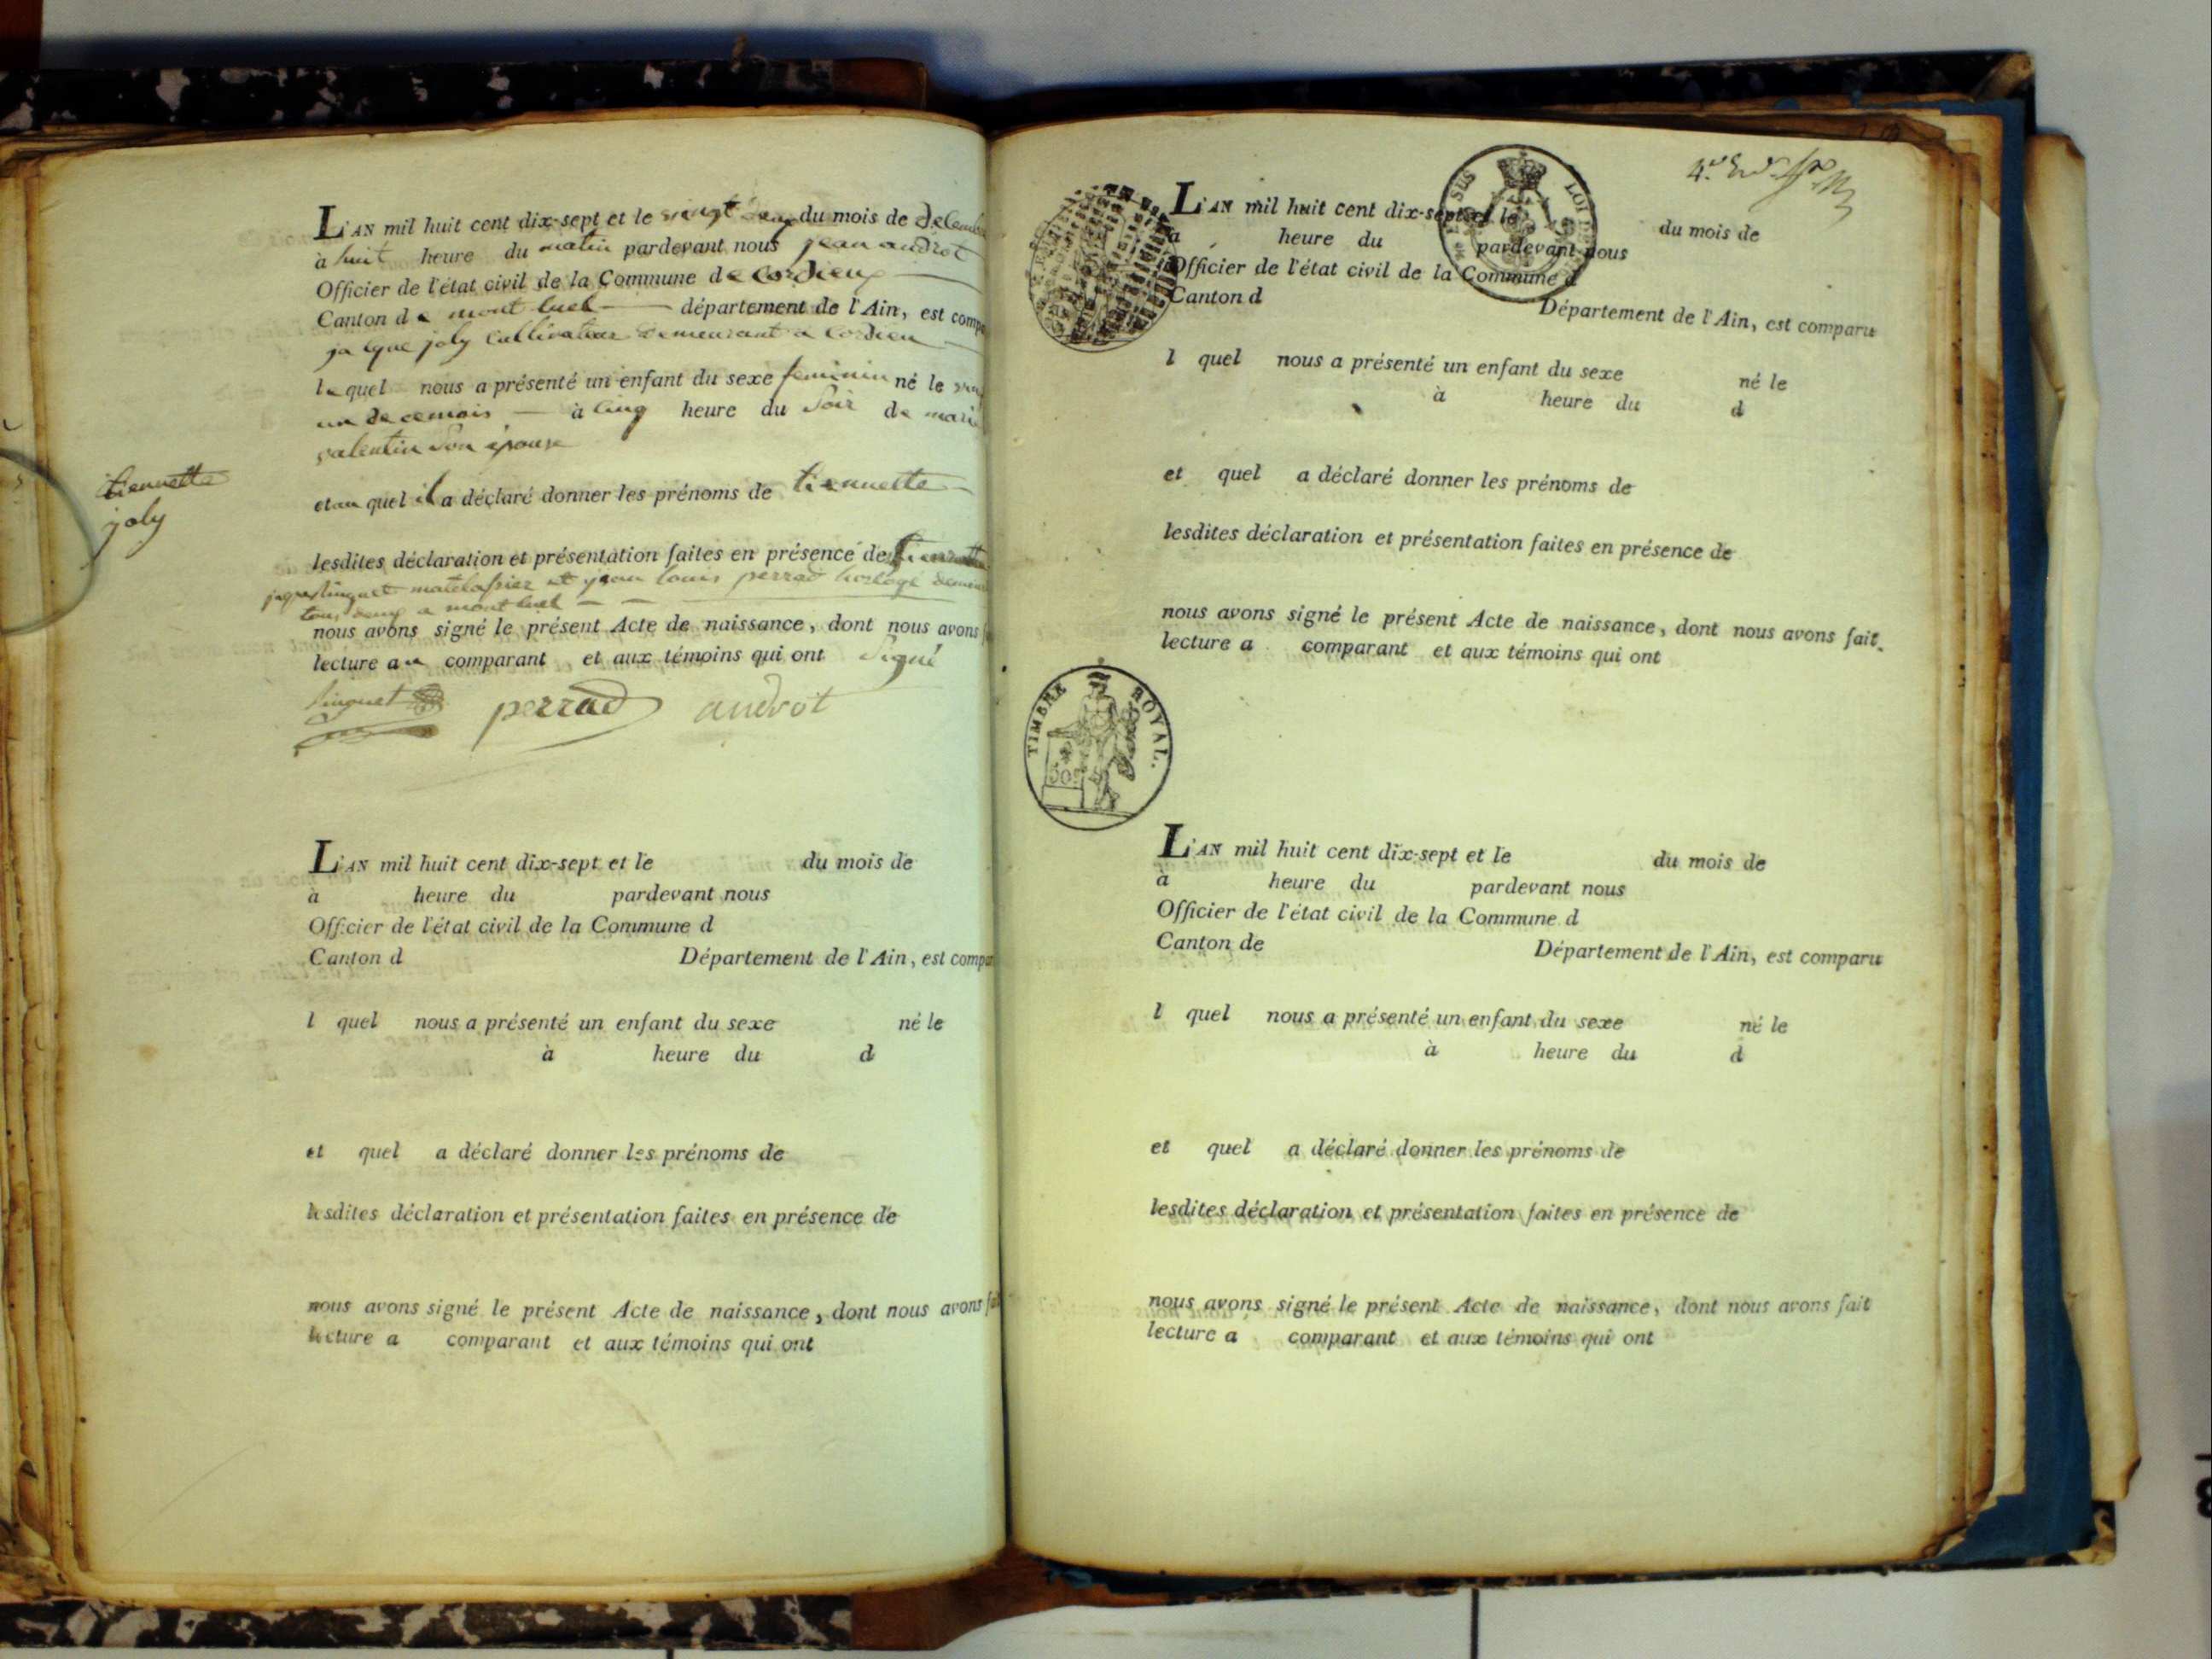 L'AN mil huit cent dix-sept et le vingt deux du mois de decemb
à huit heure du matin pardevant nous jean androt
Officier de l'état civil de la Commune de Cordieux
Canton de mont luel département de l'Ain, est comp
jaque joly Cultivateur demeurant a Cordieu
lequel nous a présenté un enfant du sexe feminin né le
un de ce mois à cinq heure du Soir de marie
valentin Son épouse
et au quel il a déclaré donner les prénoms de tiennette
tiennette
joly
lesdites déclaration et présentation faites en présence de
jaque linguet matelassier et jean louis perrad horloge demeu
tous deux a mont luel
nous avons signé le présent Acte de naissance, dont nous avons
lecture au comparant et aux témoins qui ont Signé
linguet perrad androt
L'AN mil huit cent dix-sept et le du mois de
à heure du pardevant nous
Officier de l'état civil de la Commune d
Canton d Département de l'Ain, est compa
l quel nous a présenté un enfant du sexe né le
à heure du d
et quel a déclaré donner les prénoms de
lesdites déclaration et présentation faites en présence de
nous avons signé le présent Acte de naissance, dont nous avons
lecture a comparant et aux témoins qui ont
L'AN mil huit cent dix-sept et le du mois de
à heure du pardevant nous
Officier de l'état civil de la Commune d
Canton d Département de l'Ain, est comparu
l quel nous a présenté un enfant du sexe né le
à heure du d
et quel a déclaré donner les prénoms de
lesdites déclaration et présentation faites en présence de
nous avons signé le présent Acte de naissance, dont nous avons fait
lecture a comparant et aux témoins qui ont
TIMBRE ROYAL.
L'AN mil huit cent dix-sept et le du mois de
à heure du pardevant nous
Officier de l'état civil de la Commune d
Canton de Département de l'Ain, est comparu
l quel nous a présenté un enfant du sexe né le
à heure du d
et quel a déclaré donner les prénoms de
lesdites déclaration et présentation faites en présence de
nous avons signé le présent Acte de naissance, dont nous avons fait
lecture a comparant et aux témoins qui ont